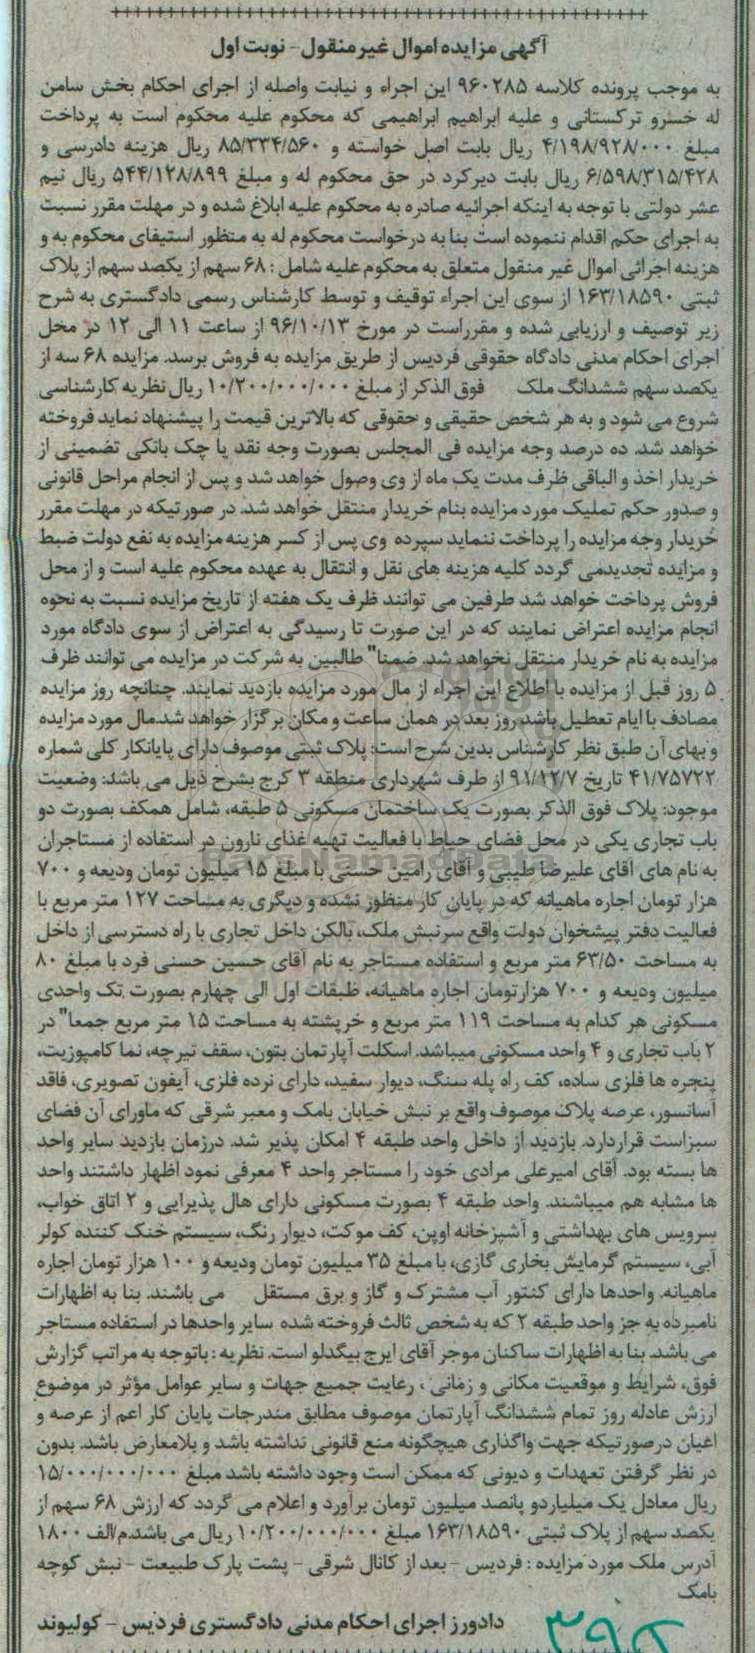 آگهی مزایده اموال غیرمنقول - نوبت اول
به موجب پرونده کلاسه ۹۶۰۲۸۵ این اجراء و نیابت واصله از اجرای احکام بخش سامن
له خسرو ترکستانی و علیه ابراهیم ابراهیمی که محکوم علیه محکوم است به پرداخت
مبلغ ۴/۱۹۸/۹۲۸/۰۰۰ ریال بابت اصل خواسته و ۸۵/۳۳۴/۵۶۰ ریال هزینه دادرسی و
۶/۵۹۸/۳۱۵/۴۲۸ ریال بابت دیرکرد در حق محکوم له و مبلغ ۵۴۴/۱۲۸/۸۹۹ ریال نیم
عشر دولتی با توجه به اینکه اجرائیه صادره به محکوم علیه ابلاغ شده و در مهلت مقرر نسبت
به اجرای حکم اقدام ننموده است بنا به درخواست محکوم له به منظور استیفای محکوم به و
هزینه اجرائی اموال غیر منقول متعلق به محکوم علیه شامل : ۶۸ سهم از یکصد سهم از پلاک
ثبتی ۱۶۳/۱۸۵۹۰ از سوی این اجراء توقیف و توسط کارشناس رسمی دادگستری به شرح
زیر توصیف و ارزیابی شده و مقرراست در مورخ ۹۶/۱۰/۱۳ از ساعت ۱۱ الی ۱۲ در محل
اجرای احکام مدنی دادگاه حقوقی فردیس از طریق مزایده به فروش برسد. مزایده ۶۸ سه از
یکصد سهم ششدانگ ملک فوق الذکر از مبلغ ۱۰/۲۰۰/۰۰۰/۰۰۰ ریال نظریه کارشناسی
شروع می شود و به هر شخص حقیقی و حقوقی که بالاترین قیمت را پیشنهاد نماید فروخته
خواهد شد. ده درصد وجه مزایده فی المجلس بصورت وجه نقد یا چک بانکی تضمینی از
خریدار اخذ و الباقی ظرف مدت یک ماه از وی وصول خواهد شد و پس از انجام مراحل قانونی
و صدور حکم تملیک مورد مزایده بنام خریدار منتقل خواهد شد. در صورتیکه در مهلت مقرر
خریدار وجه مزایده را پرداخت ننماید سپرده وی پس از کسر هزینه مزایده به نفع دولت ضبط
و مزایده تجدیدمی گردد کلیه هزینه های نقل و انتقال به عهده محکوم علیه است و از محل
فروش پرداخت خواهد شد طرفین می توانند ظرف یک هفته از تاریخ مزایده نسبت به نحوه
انجام مزایده اعتراض نمایند که در این صورت تا رسیدگی به اعتراض از سوی دادگاه مورد
مزایده به نام خریدار منتقل نخواهد شد. ضمنا" طالبین به شرکت در مزایده می توانند ظرف
۵ روز قبل از مزایده با اطلاع این اجراء از مال مورد مزایده بازدید نمایند. چنانچه روز مزایده
مصادف با ایام تعطیل باشد روز بعد در همان ساعت و مکان برگزار خواهد شد.مال مورد مزایده
و بهای آن طبق نظر کارشناس بدین شرح است: پلاک ثبتی موصوف دارای پایانکار کلی شماره
۴۱/۷۵۷۲۲ تاریخ ۹۱/۱۲/۷ از طرف شهرداری منطقه ۳ کرج بشرح ذیل می باشد: وضعیت
موجود: پلاک فوق الذکر بصورت یک ساختمان مسکونی ۵ طبقه، شامل همکف بصورت دو
باب تجاری یکی در محل فضای حیاط با فعالیت تهیه غذای نارون در استفاده از مستاجران
به نام های آقای علیرضا طیبی و آقای رامین حسنی با مبلغ ۱۵ میلیون تومان ودیعه و ۷۰۰
هزار تومان اجاره ماهیانه که در پایان کار منظور نشده و دیگری به مساحت ۱۲۷ متر مربع با
فعالیت دفتر پیشخوان دولت واقع سرنبش ملک، بالکن داخل تجاری با راه دسترسی از داخل
به مساحت ۶۳/۵۰ متر مربع و استفاده مستاجر به نام آقای حسین حسنی فرد با مبلغ ۸۰
میلیون ودیعه و ۷۰۰ هزارتومان اجاره ماهیانه، طبقات اول الی چهارم بصورت تک واحدی
مسکونی هر کدام به مساحت ۱۱۹ متر مربع و خرپشته به مساحت ۱۵ متر مربع جمعا" در
۲ باب تجاری و ۴ واحد مسکونی میباشد. اسکلت آپارتمان بتون، سقف تیرچه، نما کامپوزیت،
پنجره ها فلزی ساده، کف راه پله سنگ، دیوار سفید، دارای نرده فلزی، آیفون تصویری، فاقد
آسانسور، عرصه پلاک موصوف واقع بر نبش خیابان بامک و معبر شرقی که ماورای آن فضای
سبزاست قراردارد. بازدید از داخل واحد طبقه ۴ امکان پذیر شد. درزمان بازدید سایر واحد
ها بسته بود. آقای امیرعلی مرادی خود را مستاجر واحد ۴ معرفی نمود اظهار داشتند واحد
ها مشابه هم میباشند. واحد طبقه ۴ بصورت مسکونی دارای هال پذیرایی و ۲ اتاق خواب،
سرویس های بهداشتی و آشپزخانه اوپن، کف موکت، دیوار رنگ، سیستم خنک کننده کولر
آبی، سیستم گرمایش بخاری گازی، با مبلغ ۳۵ میلیون تومان ودیعه و ۱۰۰ هزار تومان اجاره
ماهیانه. واحدها دارای کنتور آب مشترک و گاز و برق مستقل می باشند. بنا به اظهارات
نامبرده به جز واحد طبقه ۲ که به شخص ثالث فروخته شده سایر واحدها در استفاده مستاجر
می باشد. بنا به اظهارات ساکنان موجر آقای ایرج بیگدلو است. نظریه : باتوجه به مراتب گزارش
فوق، شرایط و موقعیت مکانی و زمانی ، رعایت جمیع جهات و سایر عوامل مؤثر در موضوع
ارزش عادله روز تمام ششدانگ آپارتمان موصوف مطابق مندرجات پایان کار اعم از عرصه و
اعیان درصورتیکه جهت واگذاری هیچگونه منع قانونی نداشته باشد و بلامعارض باشد. بدون
در نظر گرفتن تعهدات و دیونی که ممکن است وجود داشته باشد مبلغ ۱۵/۰۰۰/۰۰۰/۰۰۰
ریال معادل یک میلیاردو پانصد میلیون تومان برآورد و اعلام می گردد که ارزش ۶۸ سهم از
یکصد سهم از پلاک ثبتی ۱۶۳/۱۸۵۹۰ مبلغ ۱۰/۲۰۰/۰۰۰/۰۰۰ ریال می باشد.م/الف ۱۸۰۰
آدرس ملک مورد مزایده : فردیس - بعد از کانال شرقی - پشت پارک طبیعت - نبش کوچه
بامک
دادورز اجرای احکام مدنی دادگستری فردیس - کولیوند
ParsNamadData